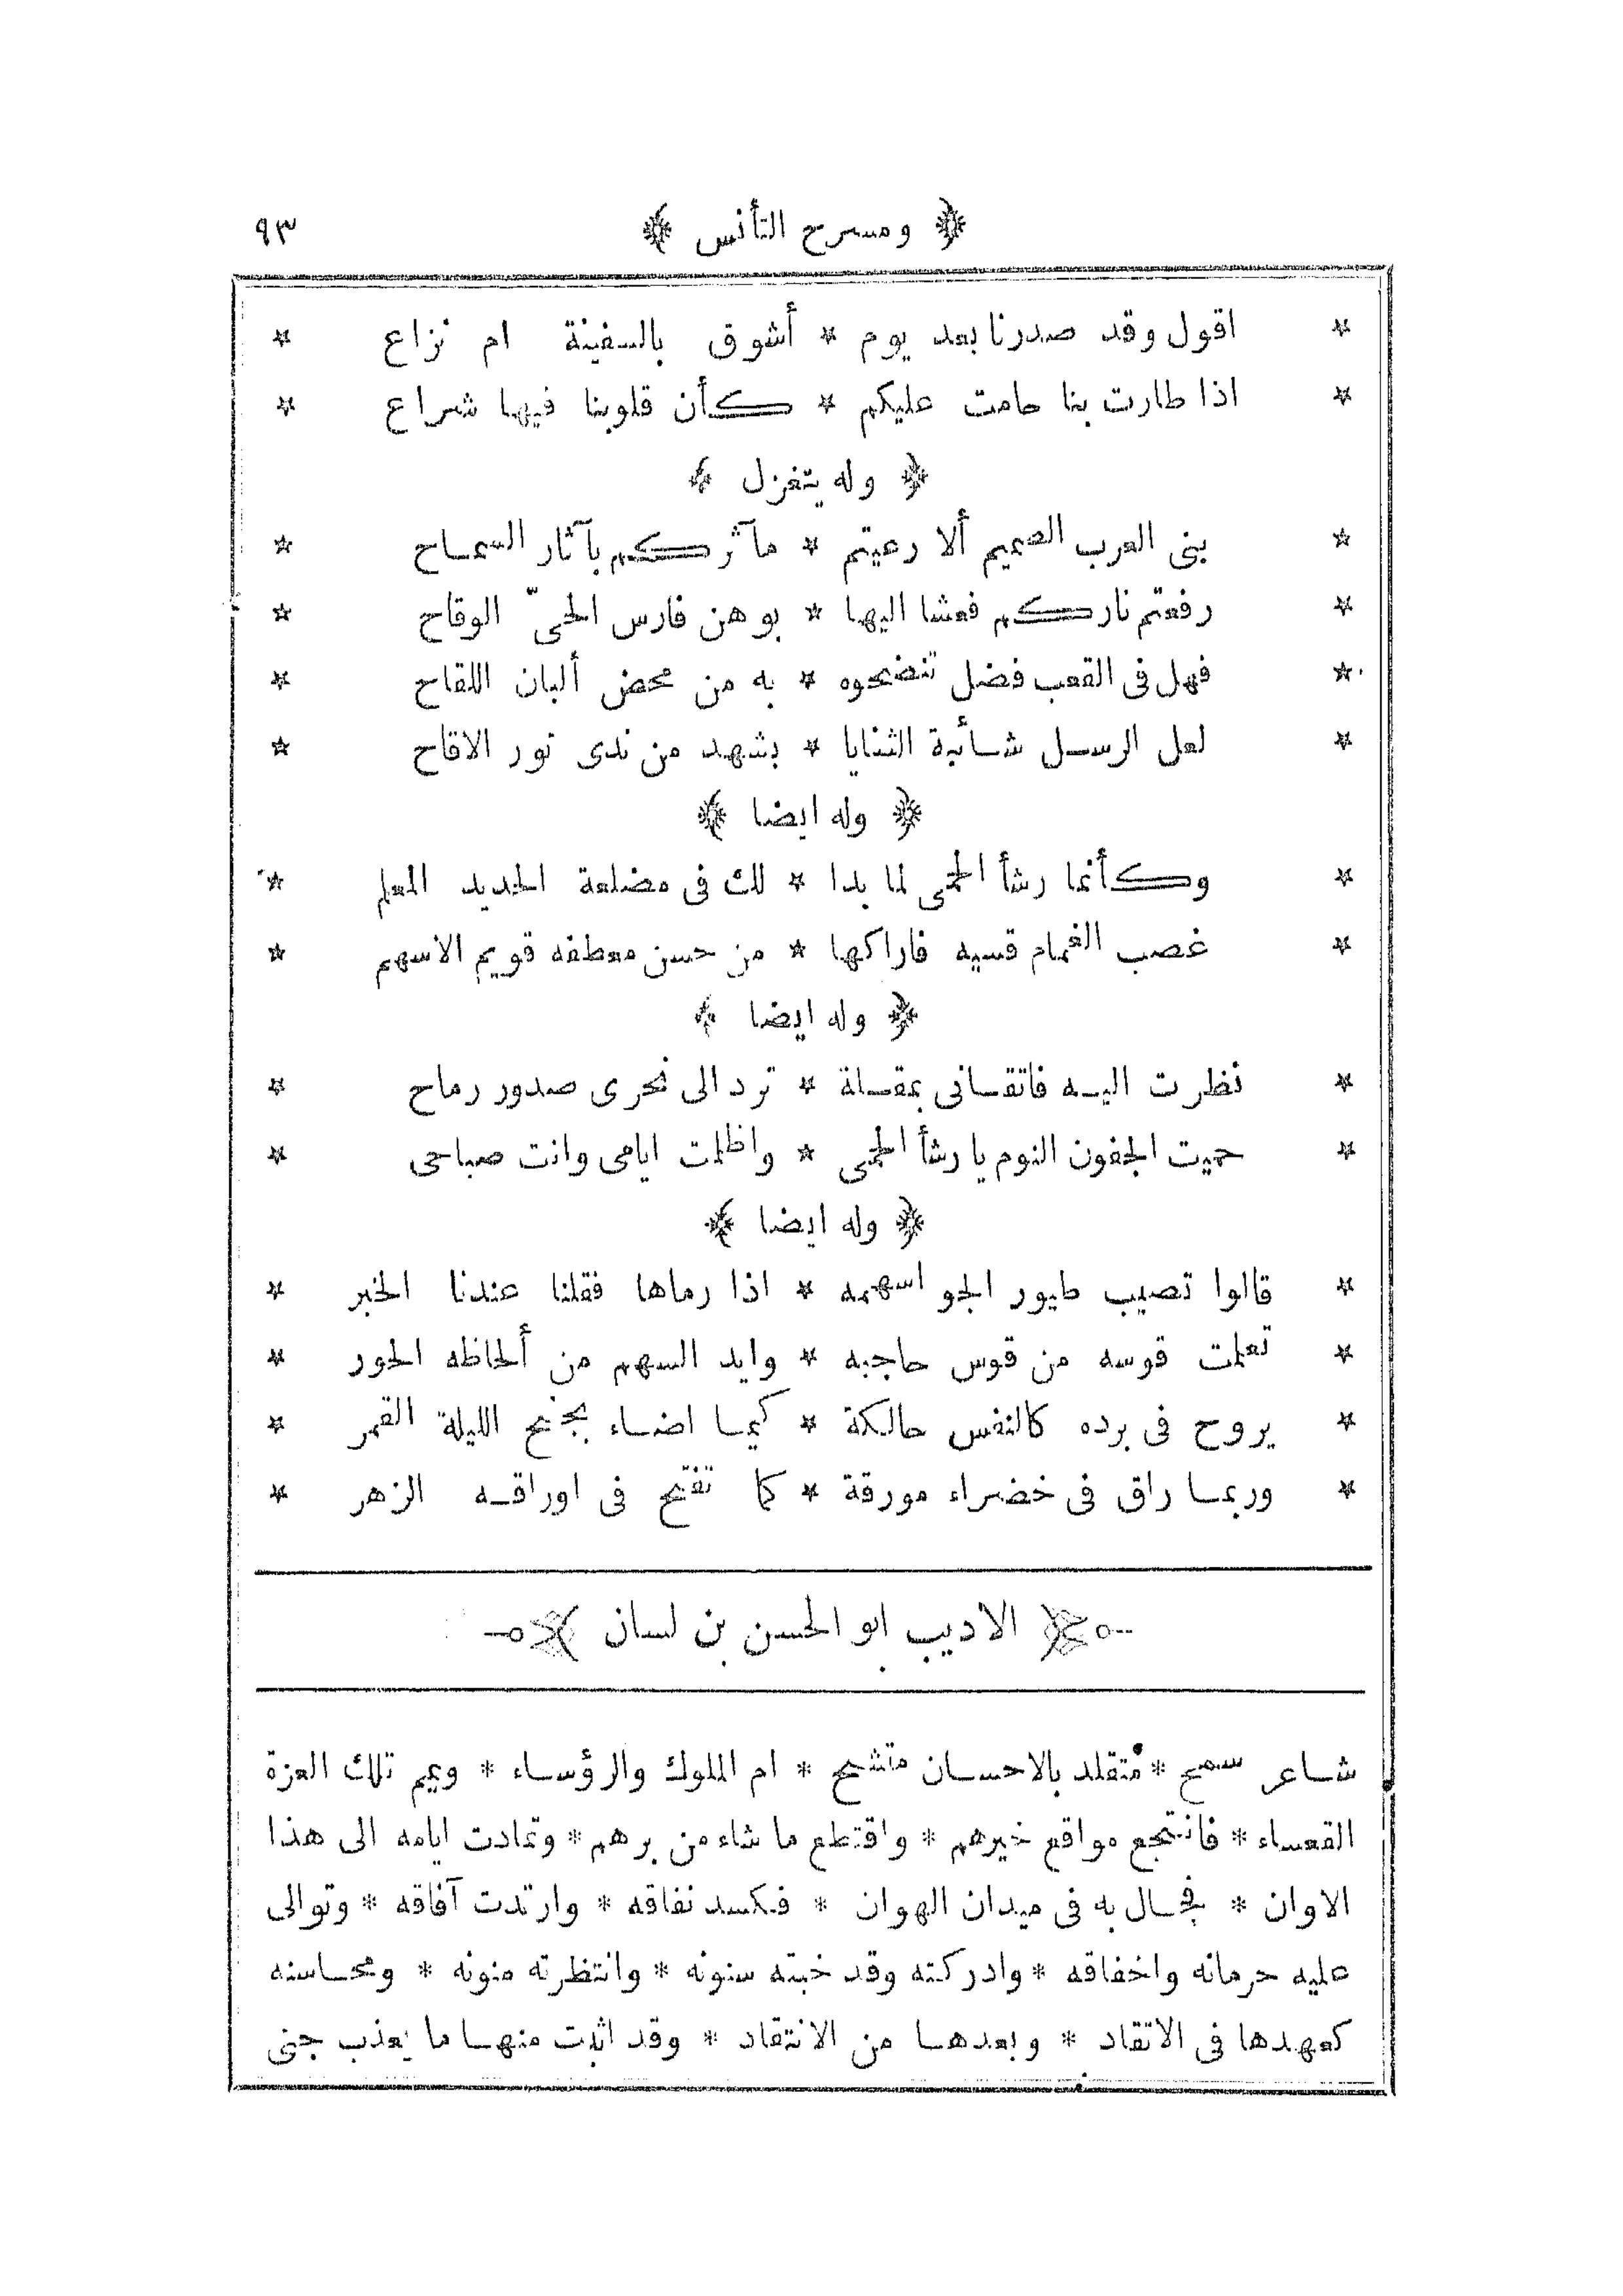 ﴿ ومسرح التأنس ﴾ ٩٣
* اقول وقد صدرنا بعد يوم * أشوق بالسفينة ام نزاع *
* اذا طارت بنا حامت عليكم * كأن قلوبنا فيها شراع *
﴿ وله يتغزل ﴾
* بنى العرب الصميم ألا رعيتم * مآثركم بآثار السماح *
* رفعتم ناركم فعشا اليها * بوهن فارس الحىّ الوقاح *
* فهل فى القعب فضل تنضحوه * به من محض ألبان اللقاح *
* لعل الرسل شائبة الثنايا * بشهد من ندى نور الاقاح *
﴿ وله ايضا ﴾
* وكأنما رشأ الحمى لما بدا * لك فى مضلعة الحديد المعلم *
* غصب الغمام قسيه فاراكها * من حسن معطفه قويم الاسهم *
﴿ وله ايضا ﴾
* نظرت اليه فاتقانى بمقلة * ترد الى نحرى صدور رماح *
* حميت الجفون النوم يا رشأ الحمى * واظلمت ايامى وانت صباحى *
﴿ وله ايضا ﴾
* قالوا تصيب طيور الجو اسهمه * اذا رماها فقلنا عندنا الخبر *
* تعلمت قوسه من قوس حاجبه * وايد السهم من ألحاظه الحور *
* يروح فى برده كالنفس حالكة * كيما اضاء بجنح الليلة القمر *
* وربما راق فى خضراء مورقة * كما تفتح فى اوراقه الزهر *
﴿ الاديب ابو الحسن بن لسان ﴾
شاعر سمح * متقلد بالاحسان متشح * ام الملوك والرؤساء * ويمم تلك العزة
القعساء * فانتجع مواقع خيرهم * واقتطع ما شاء من برهم * وتمادت ايامه الى هذا
الاوان * فجال به فى ميدان الهوان * فكسد نفاقه * وارتدت آفاقه * وتوالى
عليه حرمانه واخفاقه * وادركته وقد خبته سنونه * وانتظرته منونه * ومحاسنه
كعهدها فى الاتقاد * وبعدها من الانتقاد * وقد اثبت منها ما يعذب جنى